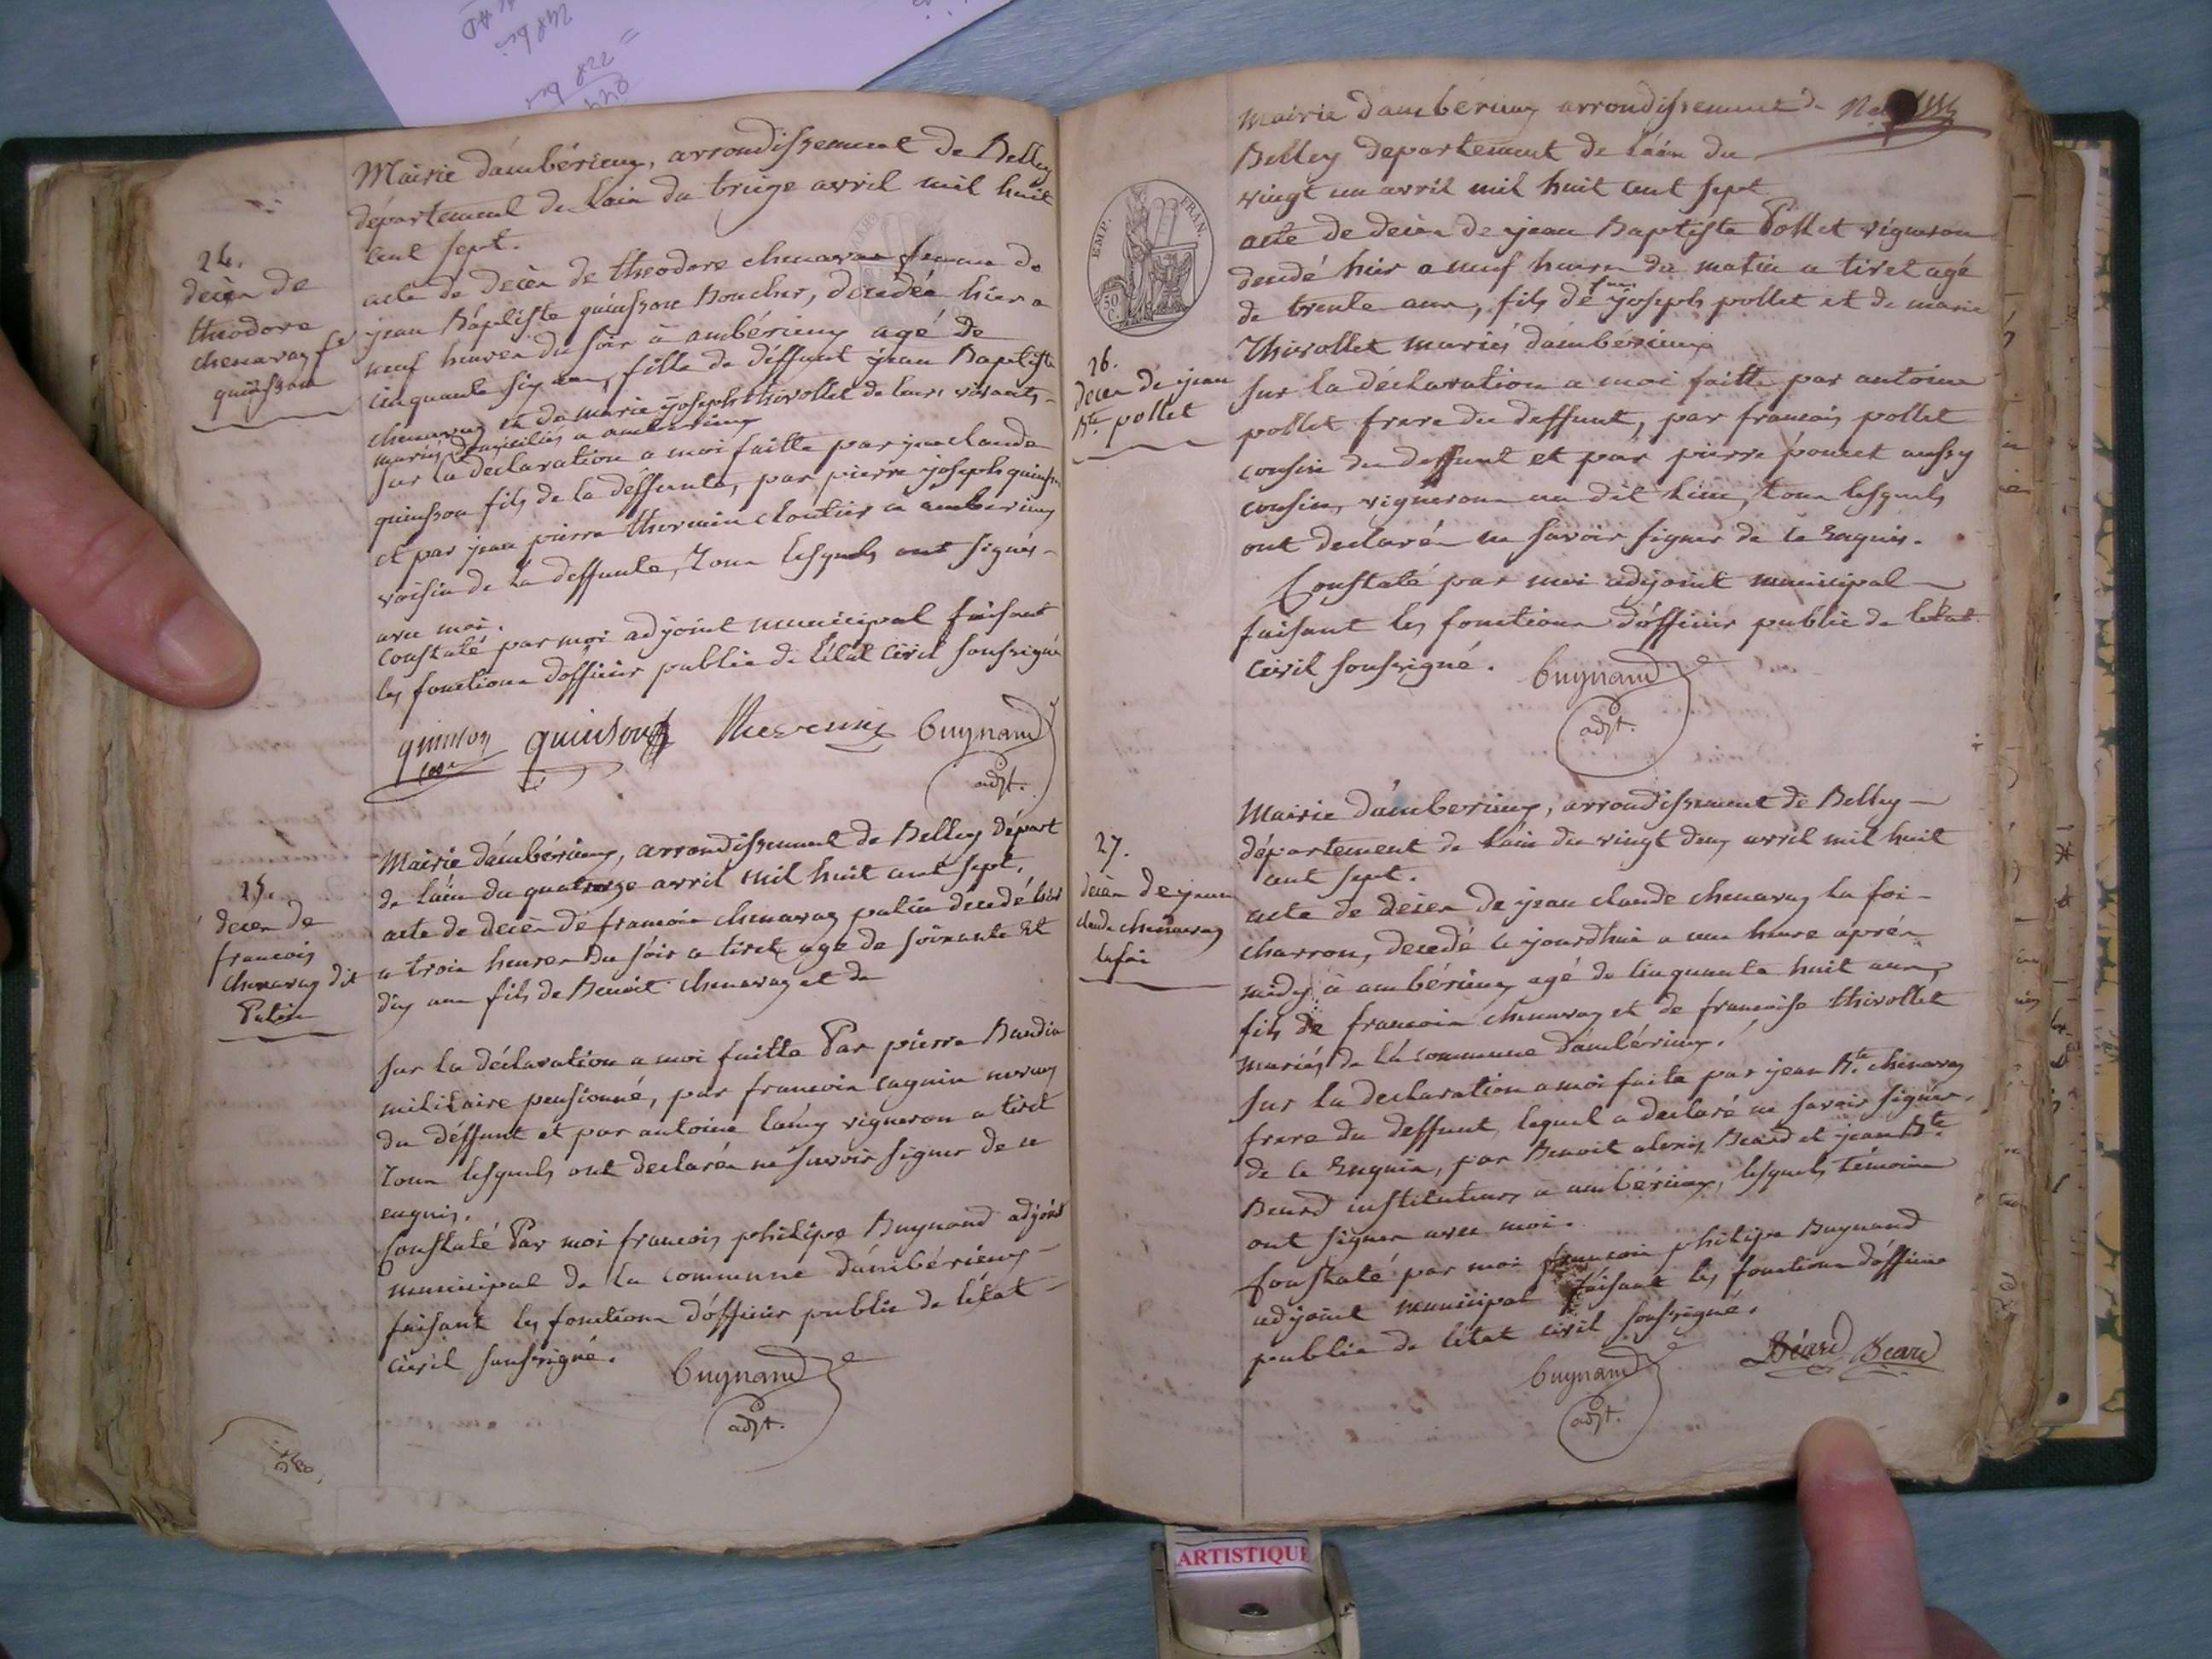 Mairie dámbérieux, arrondissement de Belley
département de lain du treize avril mil huit
cent sept.
24.
decèn de
theodore
chenavaz fe
quinsson
acte de decèn de theodore chenavaz femme de
jean Baptiste quinsson Boucher, décedée hier a
neuf heuren du soir à ambérieux agé de
cinquante six ann, fille de déffunt jean Baptiste
chenavaz et de marie joseph thivollet de leurs vivants
mariés domiciliés a ambérieux
sur la declaration a moi faitte par jean claude
quinsson fils de la déffunte, par pierre joseph quinsson
et par jean pierre thevenin cloutier a amberieux
voisin de la deffunte, toun lesquels ont signés
avec moi.
Constaté par moi adjoint municipal faisant
les fonctionn dofficier public de l'état civil soussigné
quinson quinson Thevenin Buynand
adjt.
Mairie dámbérieux, arrondissement de Belley départ
de láin du quatorze avril mil huit cent sept.
25.
decèn de
francois
chenavaz dit
Patin
acte de decèn de francoin chenavaz patin decedé hier
a troin heuren du soir a tiret agé de soixante et
dix ann fils de Benoit chenavaz et de
sur la déclaration a moi faitte Par pierre Baudin
militaire pensionné, par francoin cagnin neveux
du déffunt et par antoine lamy vigneron a tiret
toun lesquels ont declarén ne savoir signer de ce
enquis.
Constaté Par moi francois philipe Buynand adjoint
municipal de la commune dámbérieux
faisant les fonctionn dofficier public de létat
civil soussigné.
Buynand
adjt.
Mairie dambérieux arrondissement de
Belley departement de láin du
vingt un avril mil huit cent sept
EMP. FRAN.
50 C.
26.
decen de jean
Bte. pollet
acte de decèn de jean Baptiste Pollet vigneron
decedé hier a neuf heuren du matin a tiret agé
de trente ann, fils de feu joseph pollet et de marie
Thivollet mariés dámbérieux
sur la déclaration a moi faitte par antoine
pollet frere du deffunt, par francois pollet
cousin du deffunt et par pierre poncet aussy
cousin, vigneronn au dit lieu, toun lesquels
ont declarén ne savoir signer de ce Enquis.
Constaté par moi adjoint municipal
faisant les fonctionn dofficier public de létat
civil soussigné.
Buynand
adjt.
Mairie dámberieux, arrondissement de Belley
département de lain du vingt deux avril mil huit
cent sept.
27.
decèn de jean
claude chenavaz
lafoi
acte de decen de jean claude chenavaz la foi
charron, decedé ce jourdhui a une heure aprén
midy à ambérieux agé de cinquante huit ann,
fils de francoin chenavaz et de francoise thivollet
mariés de la commune dámbérieux.
sur la declaration a moi faite par jean Bte. chenavaz
frere du deffunt, lequel a declaré ne savoir signer
de ce Enquin, par Benoit alexis Beard et jean Bte
Beard instituteurs a ambérieux, lesquels témoinn
ont signen avec moi.
Constaté par moi francoin philipe Buynand
adjoint municipal faisant les fonctionn dofficier
public de létat civil soussigné.
Buynand
adjt.
Béard Beard
ARTISTIQUE